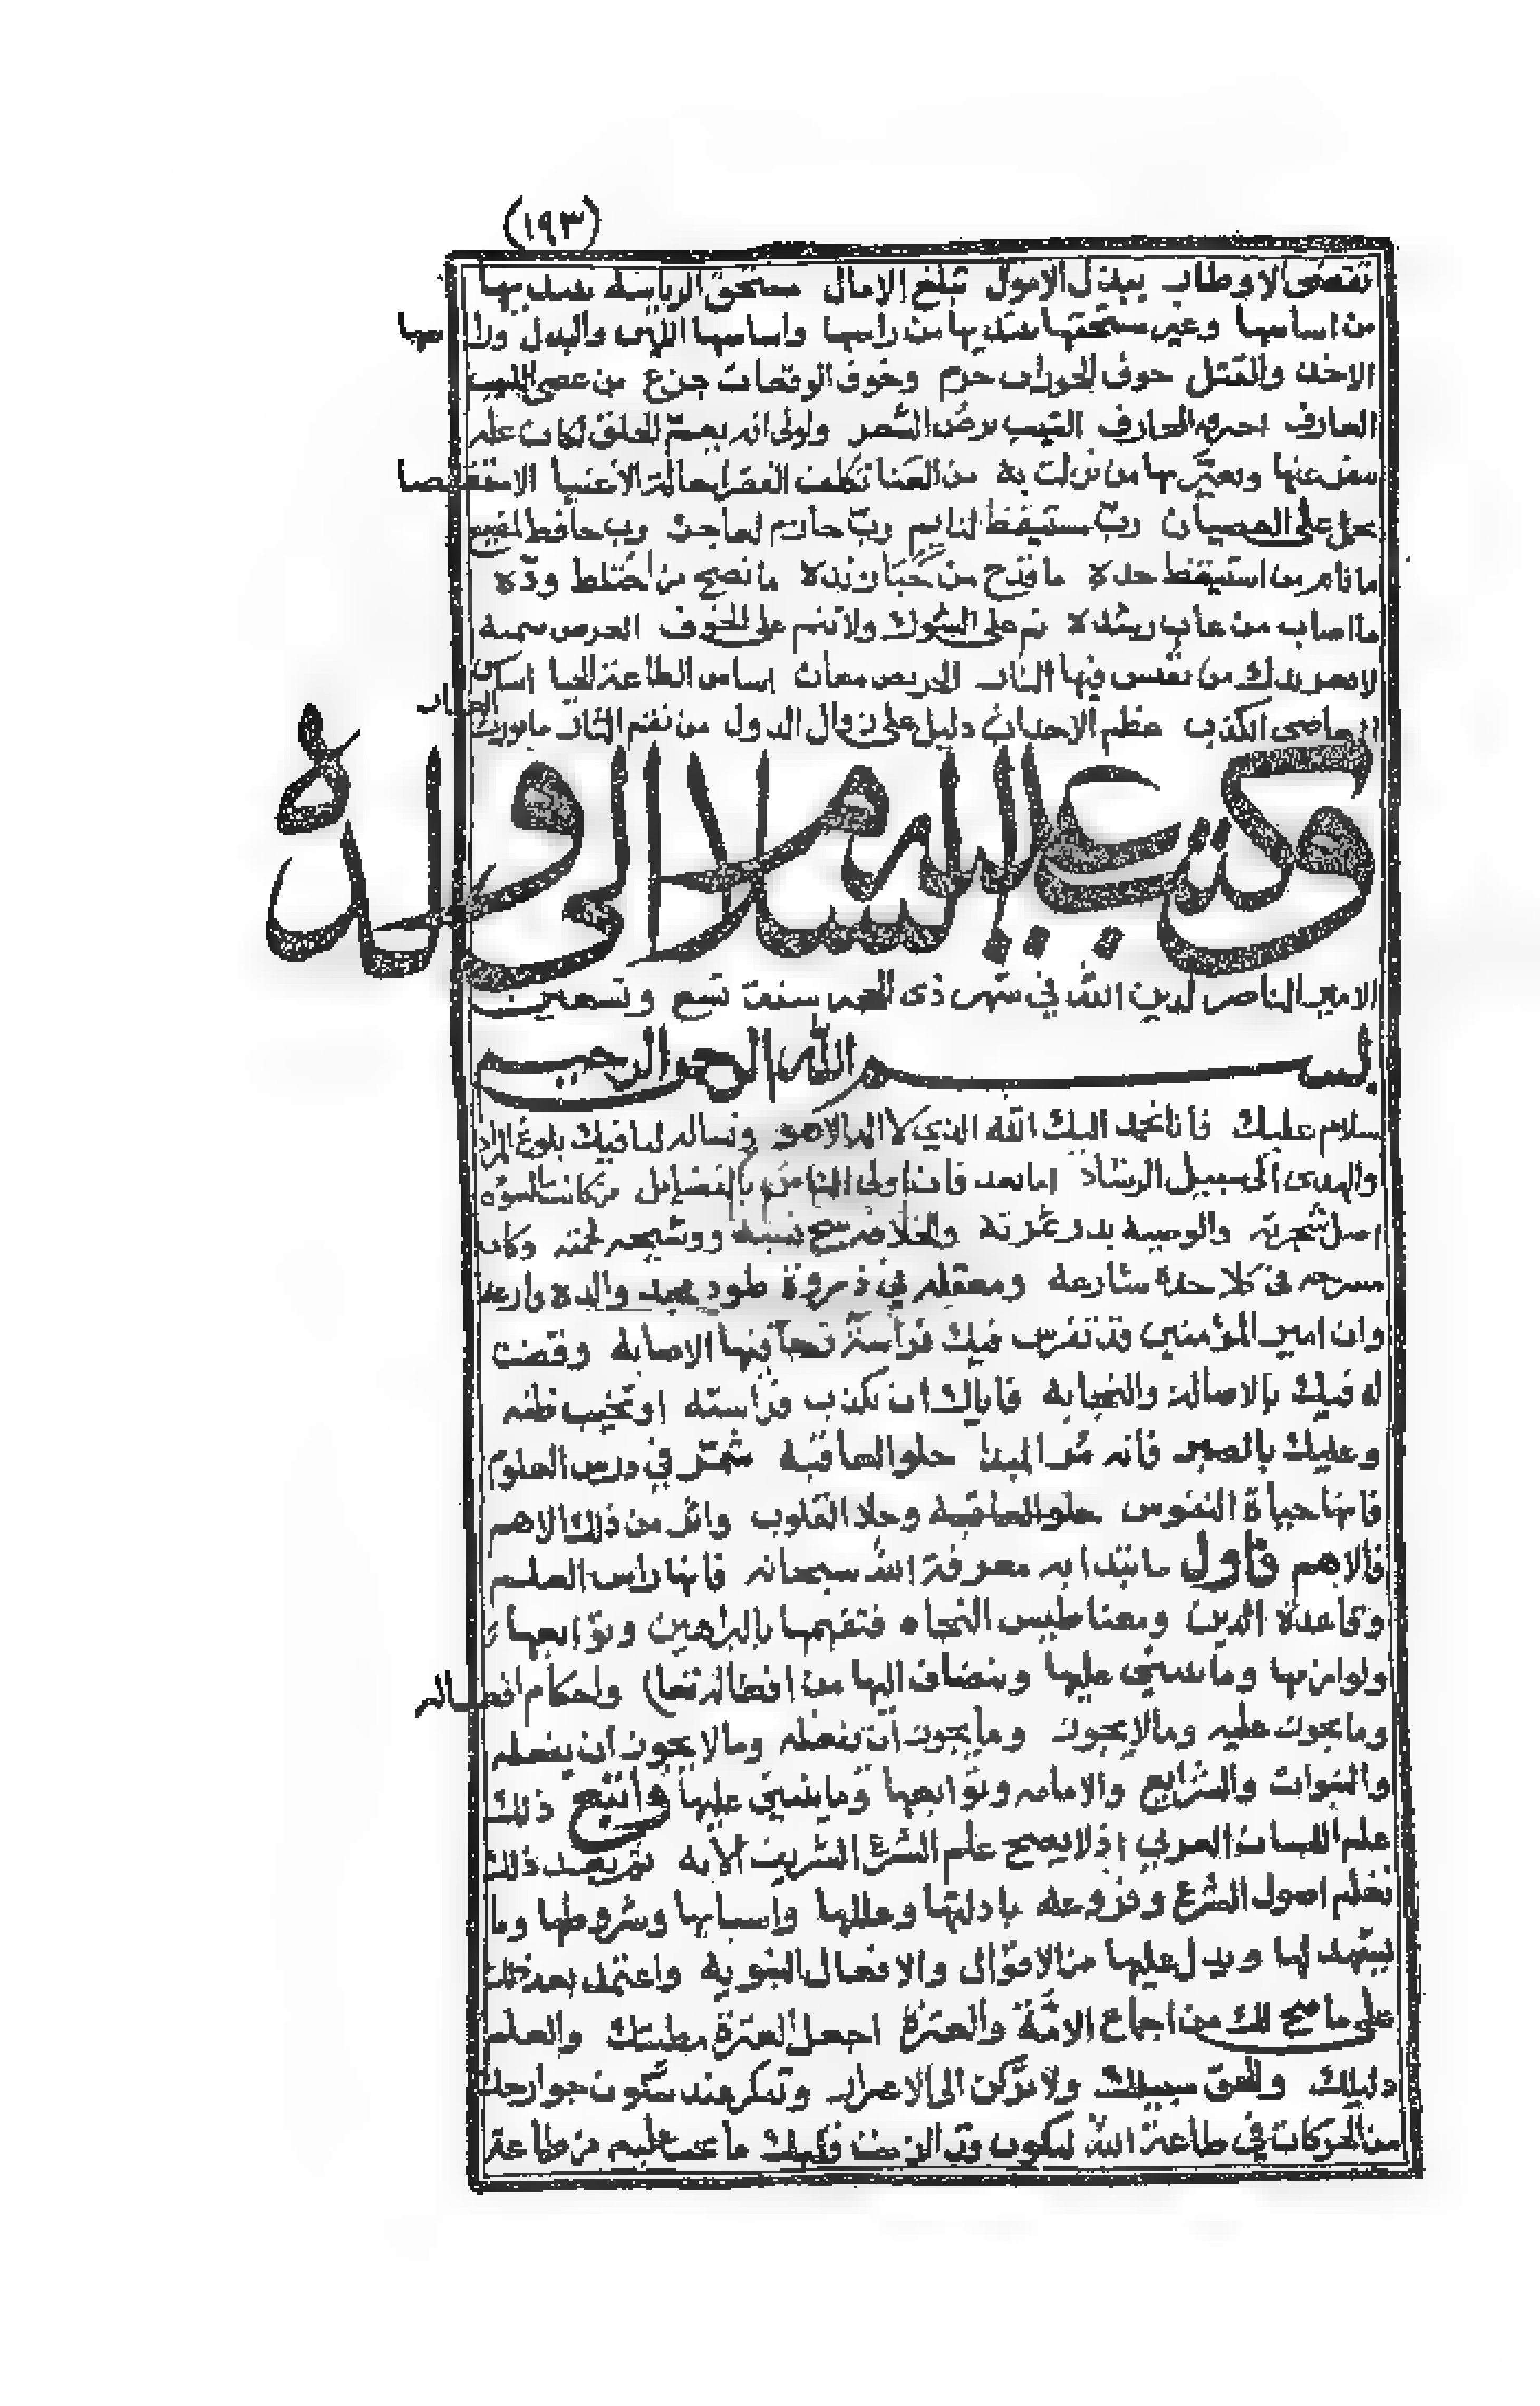 (١٩٣)
تقضى الاوطار ببذل الاموال تبلغ الامال مستحق الرياسة
من اساسها وغير مستحقها من راسها واساسها اللهى والبذل وراسها
الاخذ والقتل خوف حزم وخوف الوقعات جزع من عصى اللبيب
العارف المحارف الشيب برض الشعر ولولى انه يعم الخلق لكان عليه
من نزلت به من العنا تكلف الفقرا حالة الاغنيا الاستقصا
يحمل على العصيان ربّ مستيقظ لنايم ربّ حازم لعاجز ورب حافظ
ما نام من استيقظ جده ما قدح من زنده ما نصح من اختلط ودّه
ما اصاب من غاب رشده نم على الشوك ولا تنم على الخوف
من تنفس فيها النار اساس الطاعة الحيا اساس
المعاصى الكذب عظم الاحداث دليل على زوال الدول من نقم الثار
وكتب عليه السلام الى ولده
الامير الناصر لدين الله في شهر ذى الحجه سنة تسع وتسعين
بسم الله الرحمن الرحيم
سلام عليك فانا نحمد اليك الله الذي لا اله الا هو ونساله لنا فيك بلوغ المراد
والهدى الى سبيل الرشاد اما بعد فان اولى الناس بالفضايل من كانت النبوّه
اصل شجرته والوصية بدر غرته والخلافه نسبه ووشيجه لحمته وكان
مسرحه في كلا جده شارعه ومعقله في ذروة طود مجد والده فارعه
وان امير المؤمنين قد تفرس فيك فراسة الاصابه وقضت
له فيك بالاصالة والنجابه فاياك ان تكذب فراسته او تخيب ظنه
وعليك بالصبر فانه مُر المبدا حلو العاقبة شمّر في درس العلوم
فانها حياة النفوس حلو العاقبة وجلا القلوب واثر من ذلك الاهم
فالاهم فاول ما تبتدا به معرفة الله سبحانه فانها راس العلم
وقاعدة الدين ومغناطيس النجاه فتفهمها بالبراهين وتوابعها
ولوازمها وما ينبني عليها وينضاف اليها من افعاله تعا) واحكام افعاله
وما يجوز عليه وما لا يجوز وما يجوز ان يفعله وما لا يجوز ان يفعله
والنبوات والشرايع والامامه وتوابعها وما ينبني عليها واتبع ذلك
علم اللسان العربي اذ لا يصح علم الشرع الشريف الا به ثم بعد ذلك
تعلم اصول الشرع وفروعه بادلتها وعللها واسبابها وشروطها وما
يشهد لها ويدل عليها من الاقوال والافعال النبوية واعتمد بعد ذلك
على ما صح لك من اجماع الامّة والعترة اجعل العترة مطيتك والعلم
دليلك والحق سبيلك ولا تركن الى الاغمار وتفكر عند سكون جوارحك
من الحركات في طاعة الله ليكون قد الزمت قلبك ما يجب عليه من طاعة